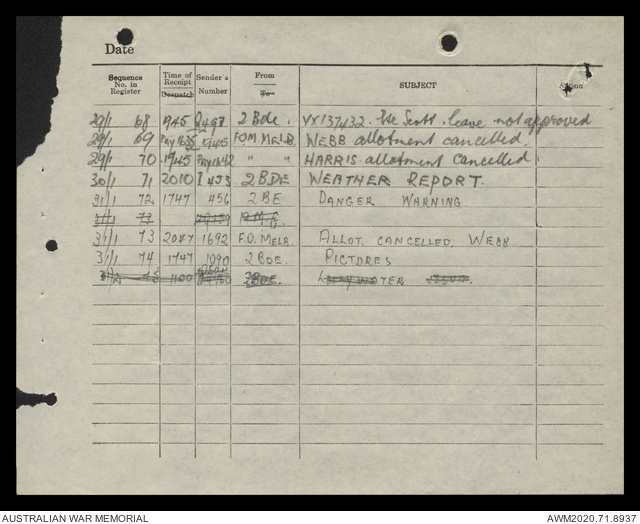 Date
Sequence No. in Register Time of Receipt Despatch Sender's Number From To SUBJECT Action
29/1 68 1945 2 Bde. VX137432. Pte Scott. leave not approved
29/1 69 FOM MELB. WEBB allotment cancelled.
29/1 70 1945 " " HARRIS allotment cancelled
30/1 71 2010 453 2 BDE WEATHER REPORT.
31/1 72 1747 456 2 BE DANGER WARNING
31/1 73
31/1 73 2047 1692 F.O. MELB. ALLOT. CANCELLED WEBB
31/1 74 1747 1090 2 BDE. PICTURES
1100 2BDE.
AUSTRALIAN WAR MEMORIAL AWM2020.71.8937